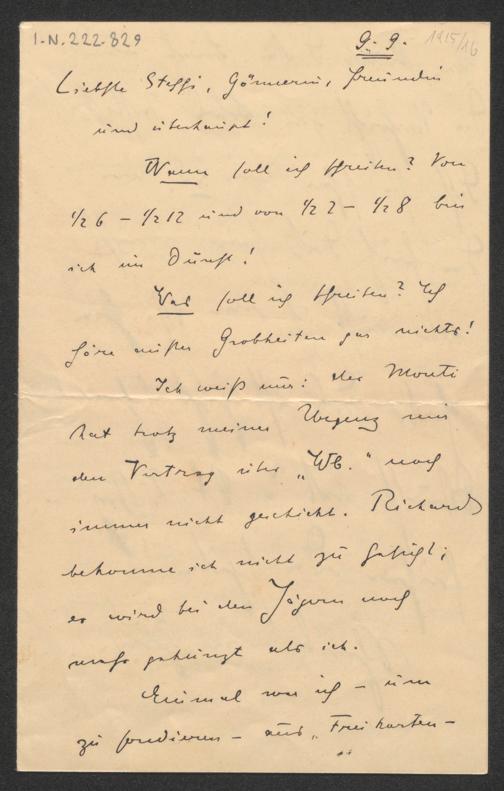 I.N. 222.829
9. 9. 1915/16
Liebste Steffi, Gönnerin, Freundin
und überhaupt!
Wann soll ich schreiben? Von
½ 6 – ½ 12 und von ½ 2 – ½ 8 bin
ich im Dienst!
Was soll ich schreiben? Ich
höre außer Grobheiten gar nichts!
Ich weiß nur: der Monti
hat trotz meiner Urgenz mir
den Vertrag über „Wb." noch
immer nicht geschickt. Richard
bekomme ich nicht zu Gesicht;
er wird bei den Jägern noch
mehr gehunzt als ich.
Einmal war ich – um
zu sondieren – aus „Freikarten-